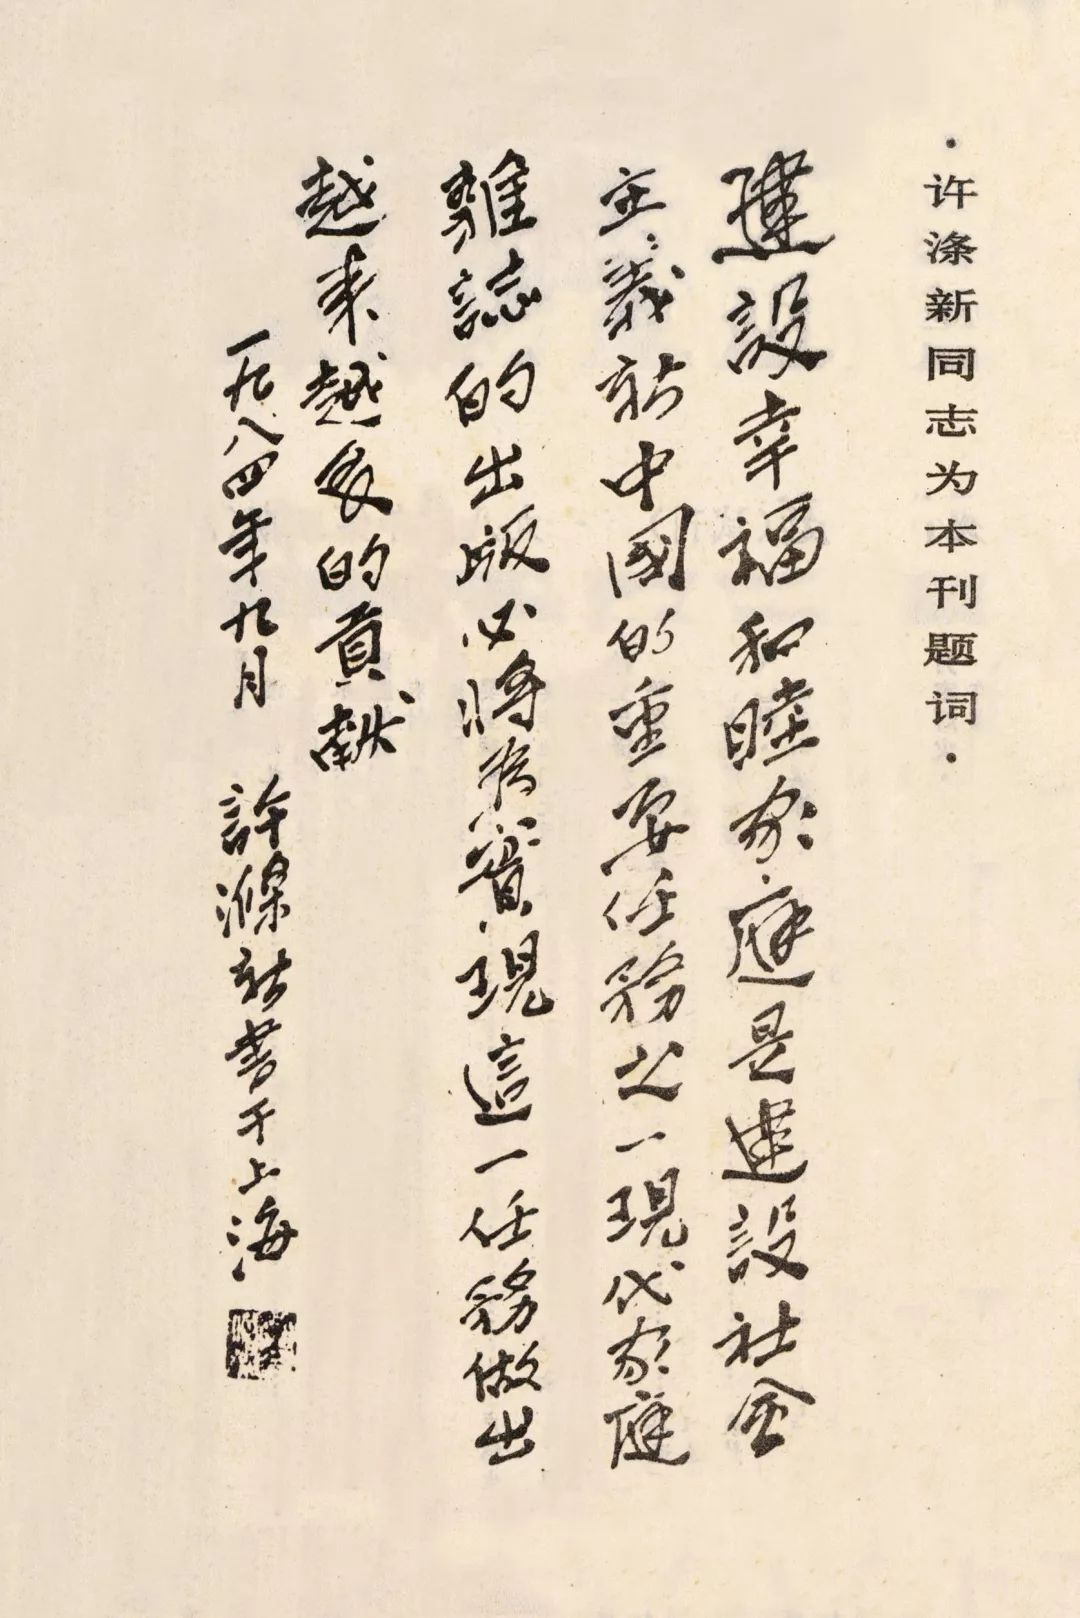 ·许涤新同志为本刊题词·
建設幸福和睦家庭是建設社会
主義新中國的重要任務之一現代家庭
雜誌的出版必將為實現這一任務做出
越来越多的貢献
一九八四年九月 許滌新書于上海